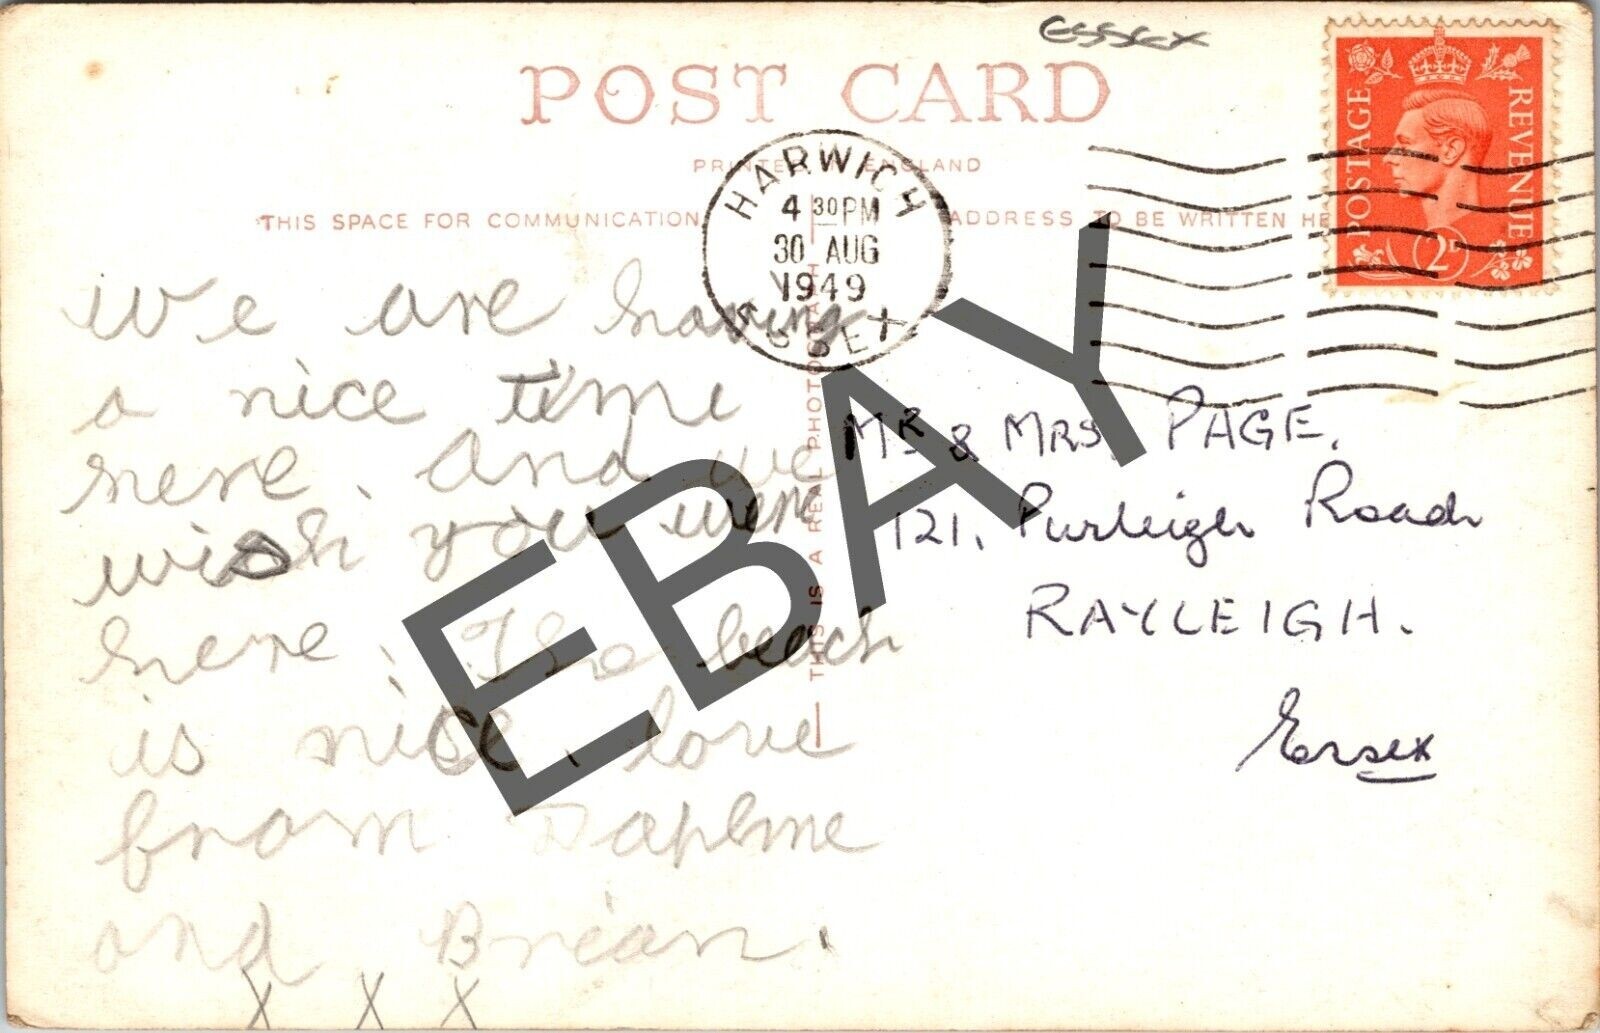 ESSEX
POST CARD
PRINTED IN ENGLAND
THIS SPACE FOR COMMUNICATION
ADDRESS TO BE WRITTEN HE
POSTAGE
REVENUE
2D
HARWICH
4 30 PM
30 AUG
1949
ESSEX
THIS IS A REAL PHOTOGRAPH
We are having
a nice time
here. and we
wish you were
here. The beach
is nice, love
from Daphne
and Brian.
X X X
MR & MRS PAGE.
121, Purleigh Road
RAYLEIGH.
Essex
EBAY